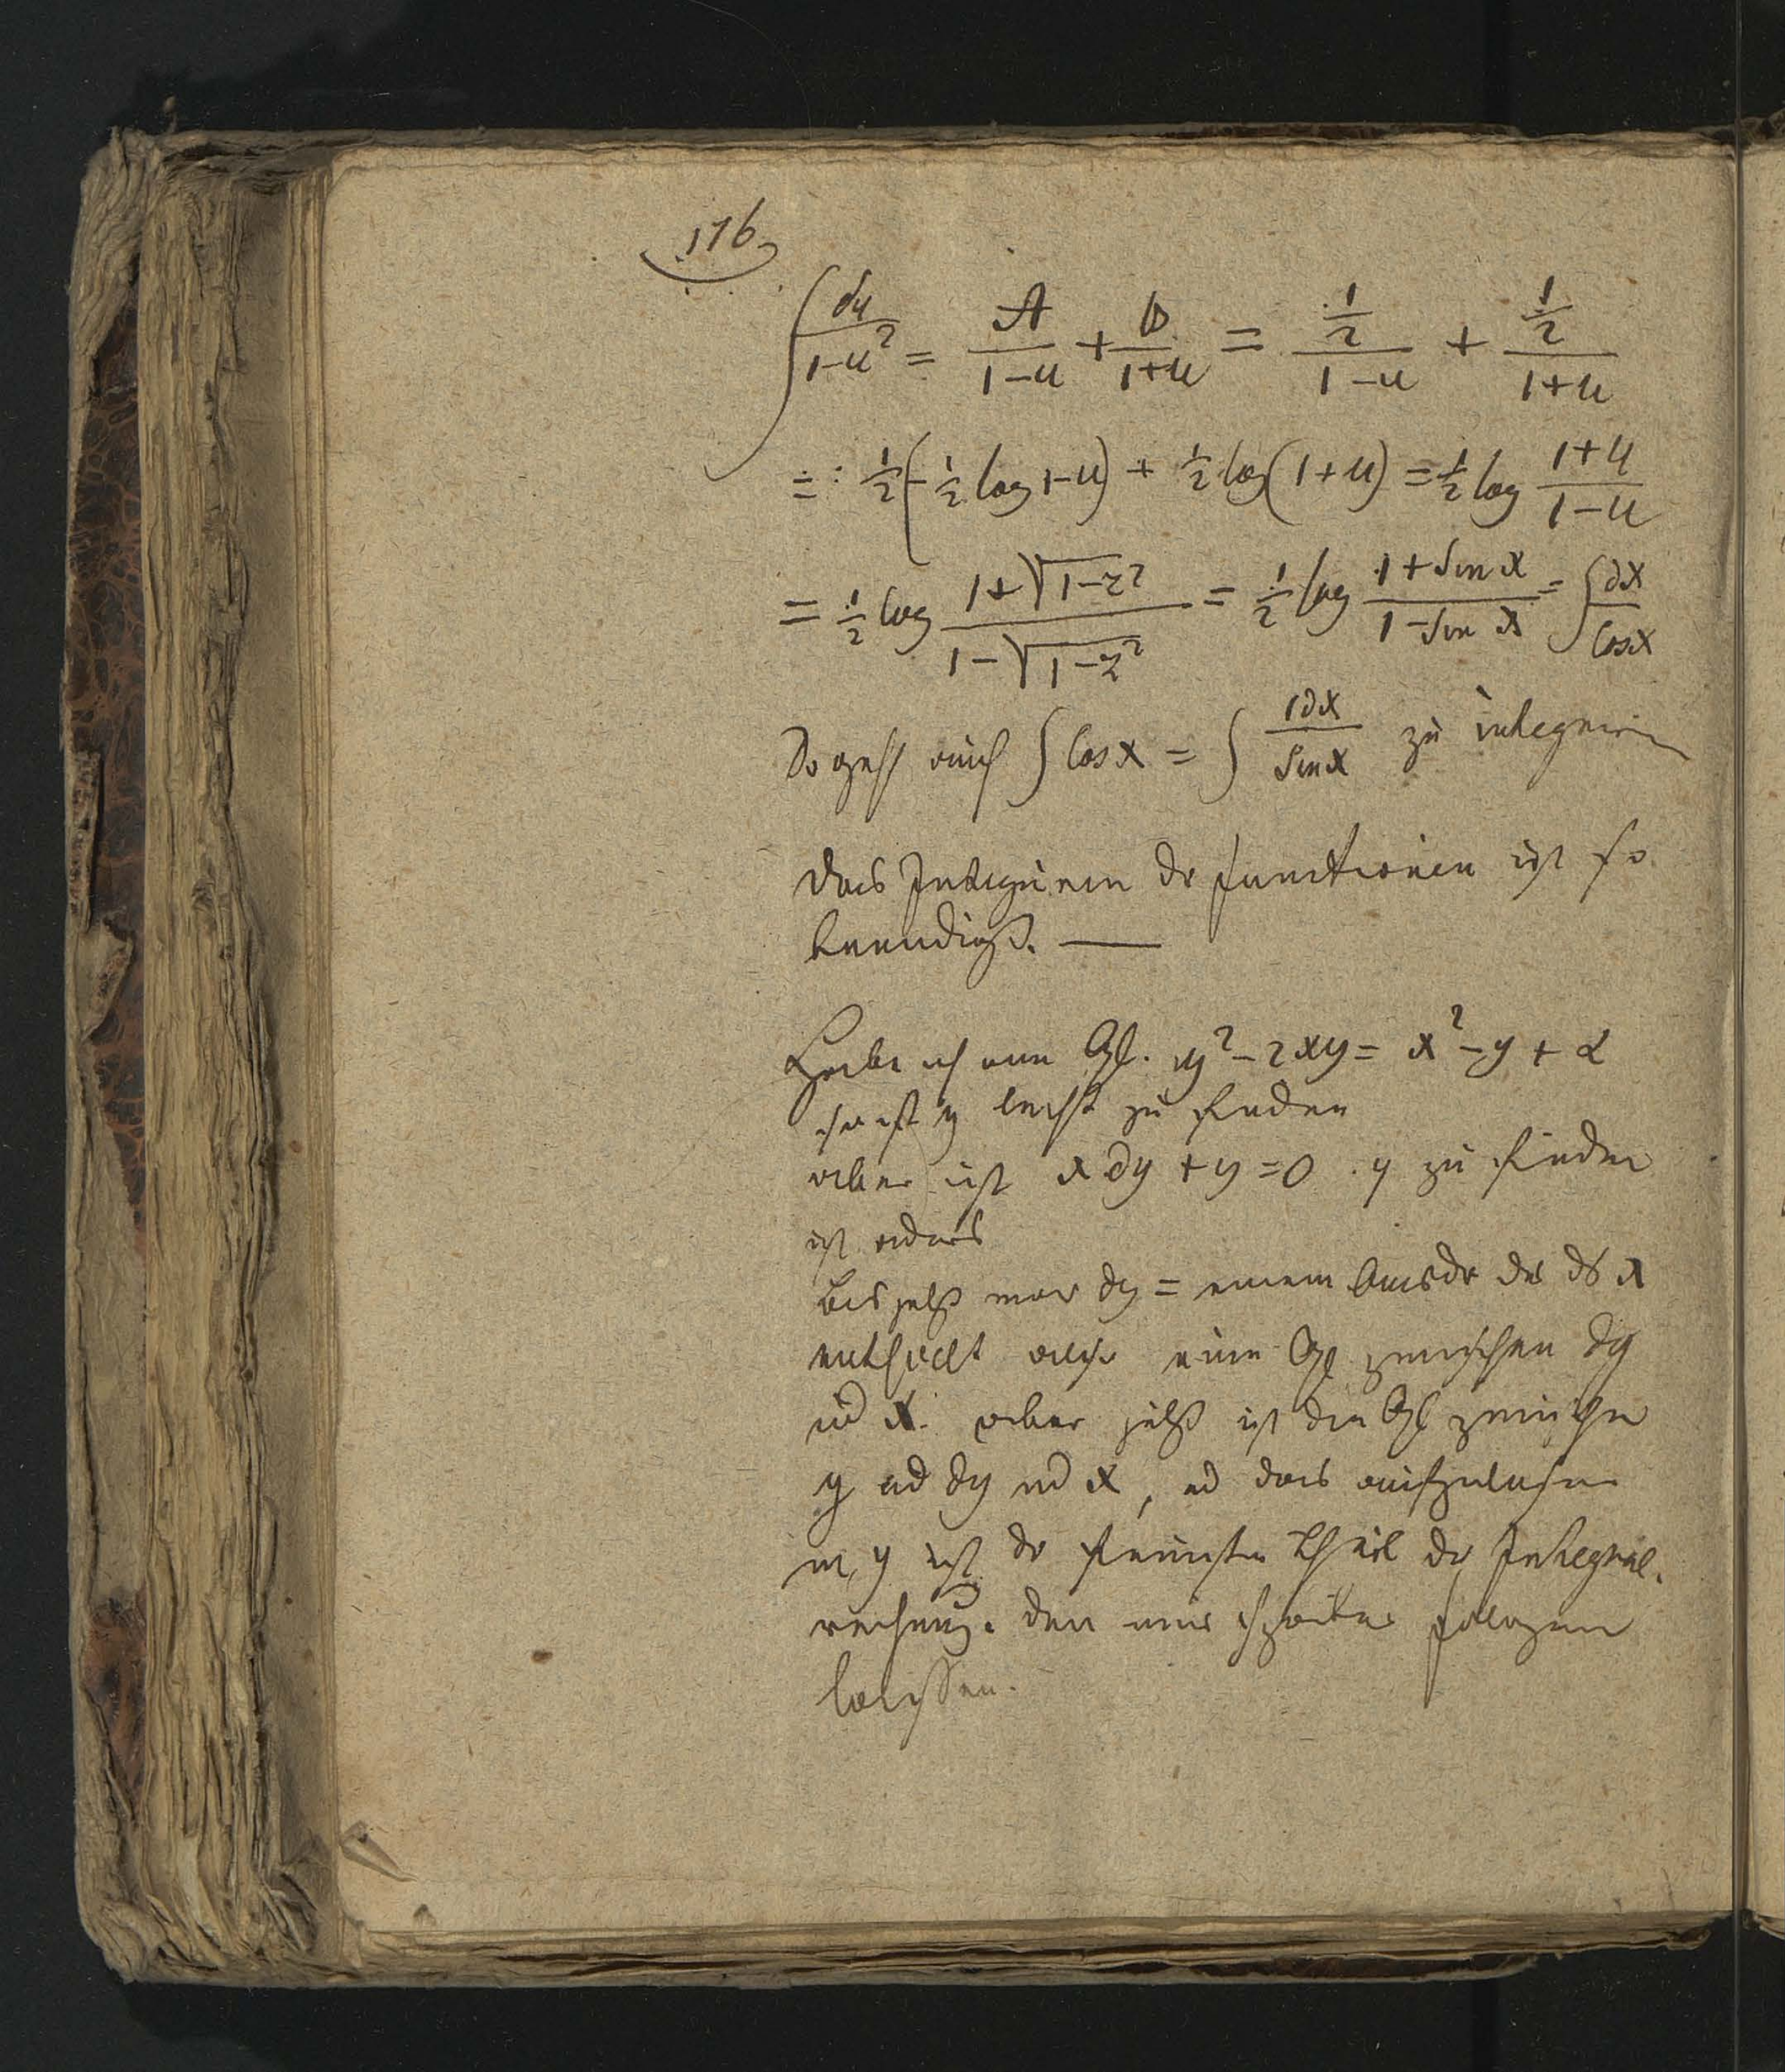 176
∫ du/(1-u²) = A/(1-u) + B/(1+u) = ½/(1-u) + ½/(1+u)
= : ½(-½ log 1-u) + ½ log (1+u) = ½ log (1+u)/(1-u)
= ½ log (1+√(1-z²))/(1-√(1-z²)) = ½ log (1+sin x)/(1-sin x) = ∫ ∂x/cos x
So geht auch ∫ cos x = ∫ 1∂x/sin x zu integriren
das Integriren dr functionen ist so
beendigt. —
Habe ich eine Gl. y² - 2xy = x² - y + α
so ist y leicht zu finden
aber ist x∂y + y = 0. y zu finden
ist anders
bis jetzt war ∂y = einem Ausdr der x
enthielt also eine Gl zwischen ∂y
ud x. aber jetzt ist die Gl zwischen
y ud ∂y ud x, ud das aufzulösen
y ist dr Theil dr Integral-
rechnung. den wir später folgen
lassen.